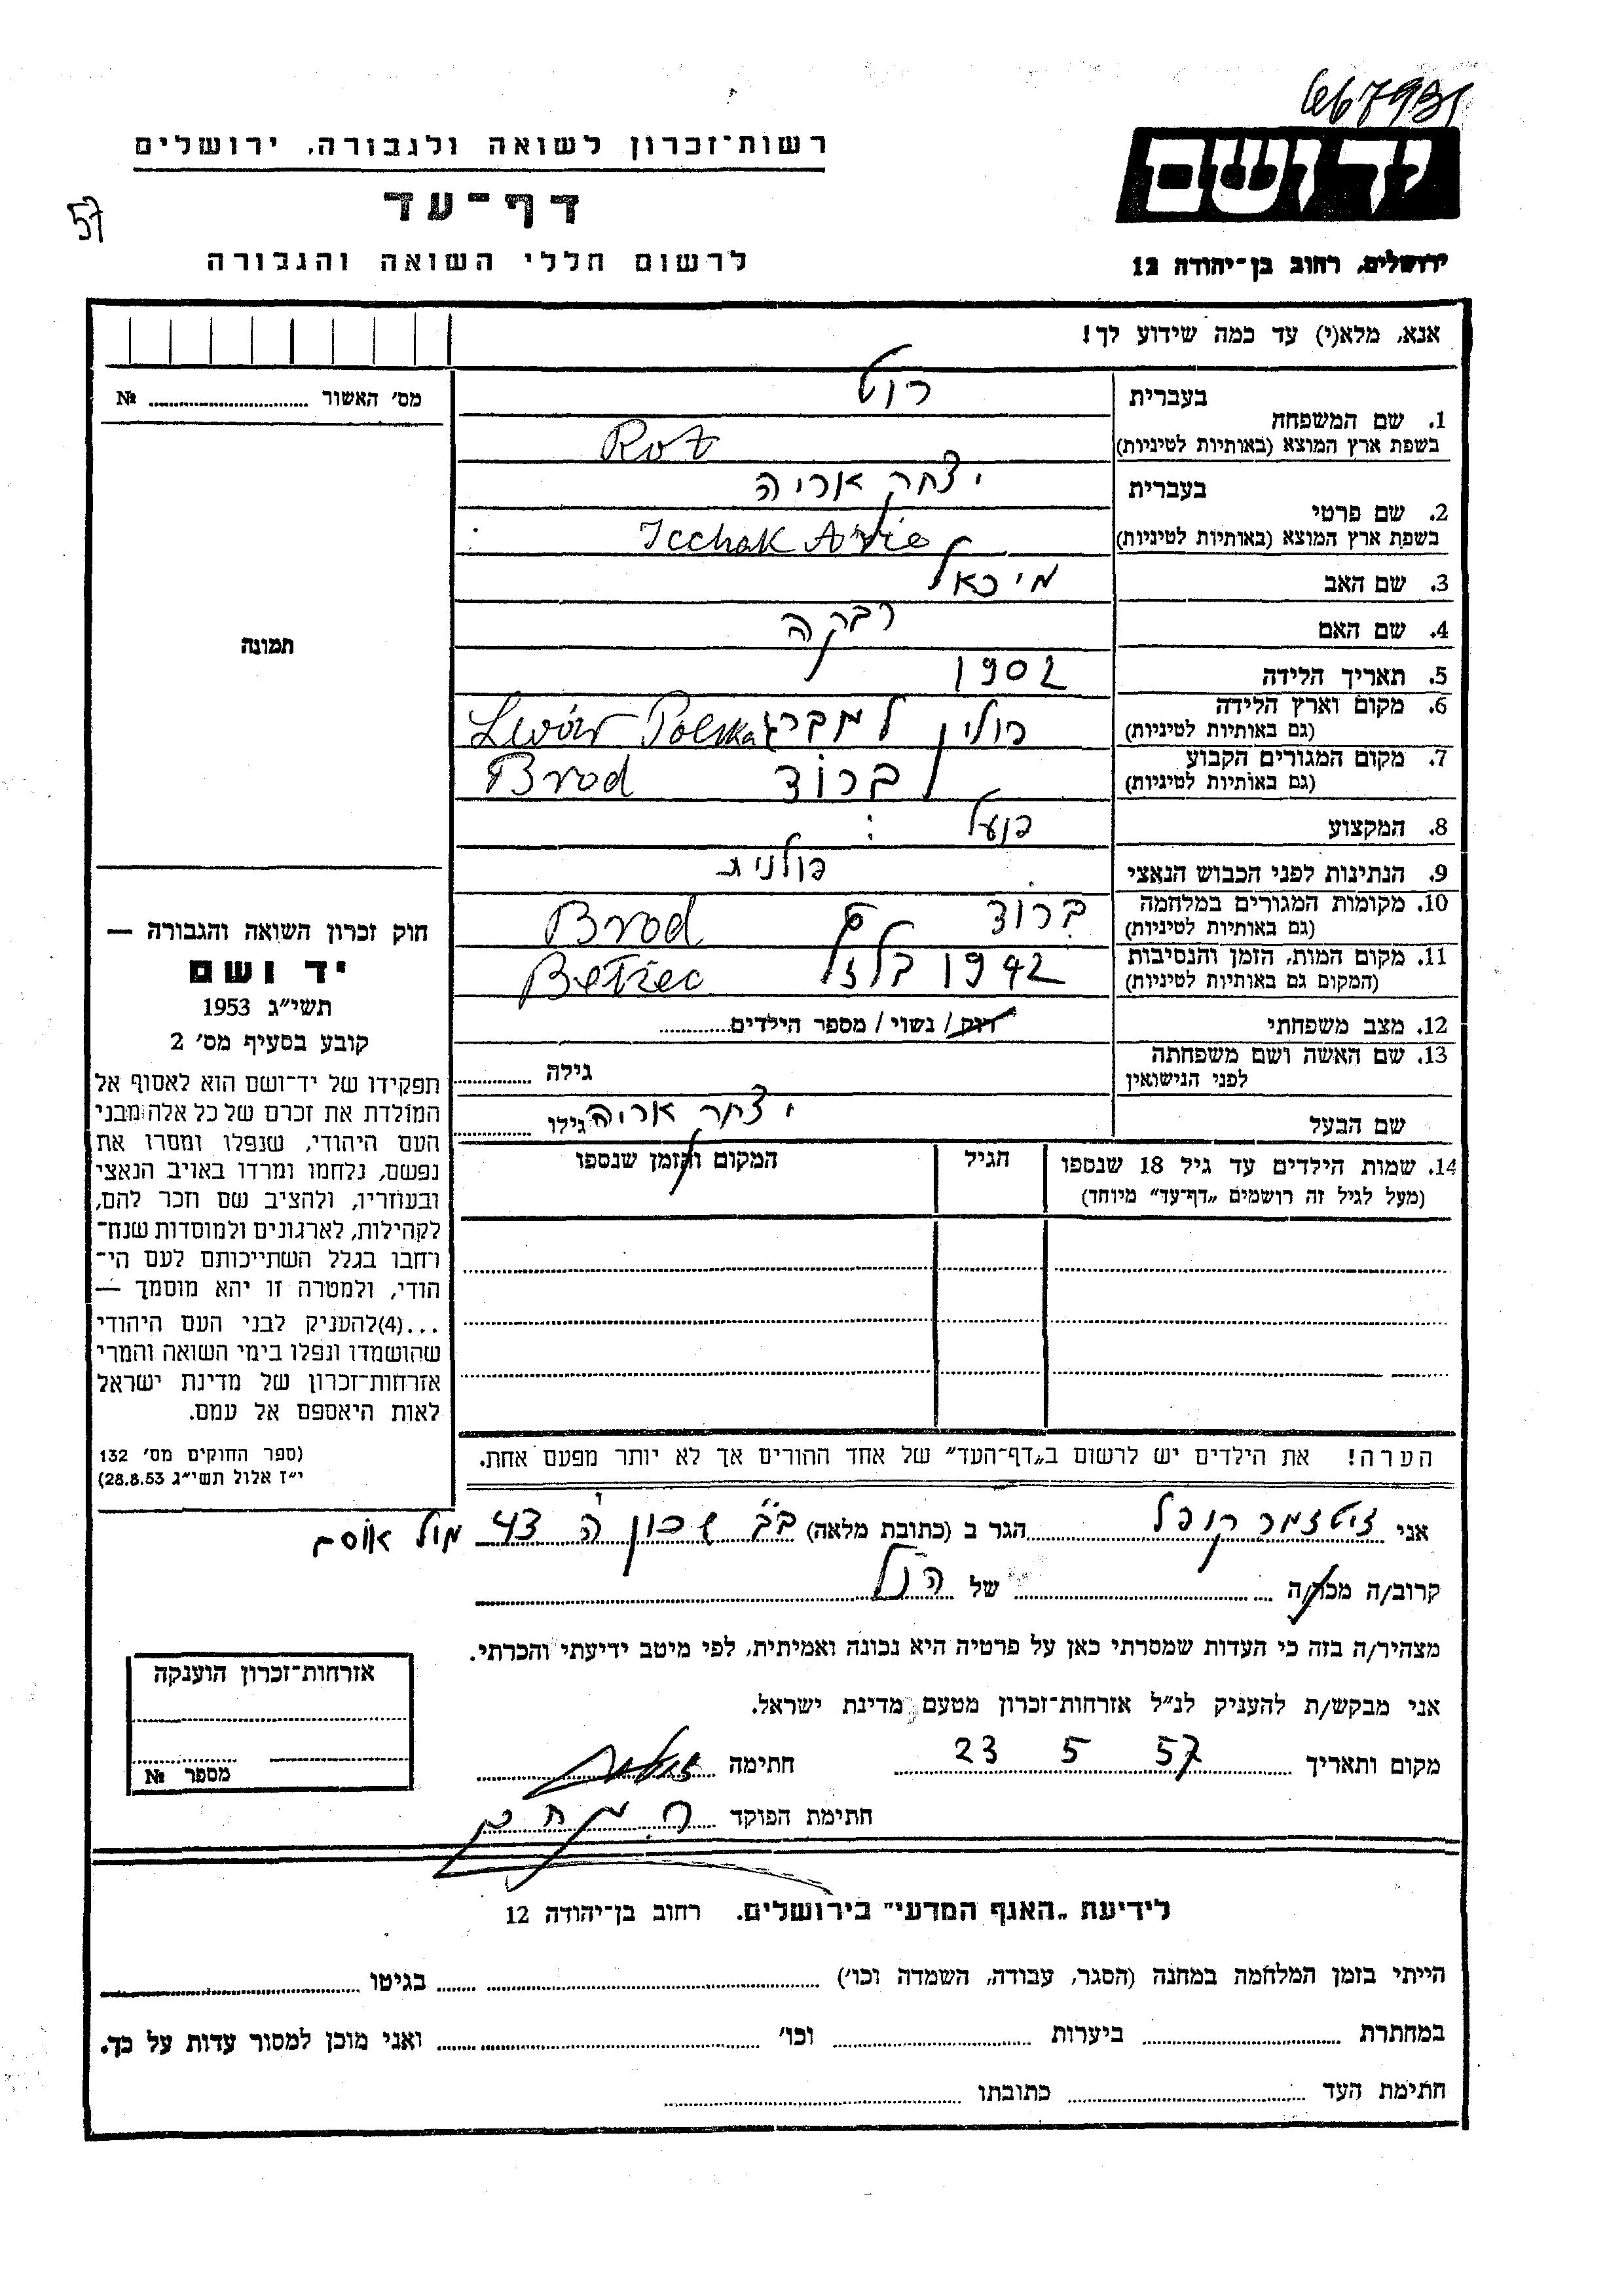 667931
ידושם
רשות־זכרון לשואה ולגבורה, ירושלים
דף־עד
57
לרשום חללי השואה והגבורה
ירושלים, רחוב בן־יהודה 12
אנא, מלא(י) עד כמה שידוע לך!
מס׳ האשור № 
בעברית רוט
1. שם המשפחה
בשפת ארץ המוצא (באותיות לטיניות) Rot
בעברית יצחק אריה
2. שם פרטי
בשפת ארץ המוצא (באותיות לטיניות) Icchak Arie
3. שם האב מיכאל
4. שם האם רבקה
5. תאריך הלידה 1902
6. מקום וארץ הלידה
(גם באותיות לטיניות) פולין למברג Lwów Polska
7. מקום המגורים הקבוע
(גם באותיות לטיניות) ברוד Brod
8. המקצוע פועל
9. הנתינות לפני הכבוש הנאצי פולנית
10. מקומות המגורים במלחמה
(גם באותיות לטיניות) ברוד Brod
11. מקום המות, הזמן והנסיבות
(המקום גם באותיות לטיניות) 1942 בלזץ Bełżec
12. מצב משפחתי רוק / נשוי / מספר הילדים
13. שם האשה ושם משפחתה
לפני הנישואין גילה
שם הבעל יצחק אריה גילו
14. שמות הילדים עד גיל 18 שנספו הגיל המקום והזמן שנספו
(מעל לגיל זה רושמים „דף־עד״ מיוחד)
תמונה
חוק זכרון השואה והגבורה —
יד ושם
תשי״ג 1953
קובע בסעיף מס׳ 2
תפקידו של יד־ושם הוא לאסוף אל
המולדת את זכרם של כל אלה מבני
העם היהודי, שנפלו ומסרו את
נפשם, נלחמו ומרדו באויב הנאצי
ובעוזריו, ולהציב שם וזכר להם,
לקהילות, לארגונים ולמוסדות שנח־
רחבו בגלל השתייכותם לעם הי־
הודי, ולמטרה זו יהא מוסמך —
...(4)להעניק לבני העם היהודי
שהושמדו ונפלו בימי השואה והמרי
אזרחות־זכרון של מדינת ישראל
לאות היאספם אל עמם.
(ספר החוקים מס׳ 132
י״ז אלול תשי״ג 28.8.53)
הערה! את הילדים יש לרשום ב„דף־העד״ של אחד ההורים אך לא יותר מפעם אחת.
אני זיסזמר קופל הגר ב (כתובת מלאה) ב״ב שכון ה׳ 43 מול אוסם
קרוב/ה מכר/ה של הנ״ל
מצהיר/ה בזה כי העדות שמסרתי כאן על פרטיה היא נכונה ואמיתית, לפי מיטב ידיעתי והכרתי.
אני מבקש/ת להעניק לנ״ל אזרחות־זכרון מטעם מדינת ישראל.
מקום ותאריך 23 5 57 חתימה
חתימת הפוקד
אזרחות־זכרון הוענקה
מספר №
לידיעת „האגף המדעי״ בירושלים. רחוב בן־יהודה 12
הייתי בזמן המלחמה במחנה (הסגר, עבודה, השמדה וכו׳) בגיטו
במחתרת ביערות וכו׳ ואני מוכן למסור עדות על כך.
חתימת העד כתובתו